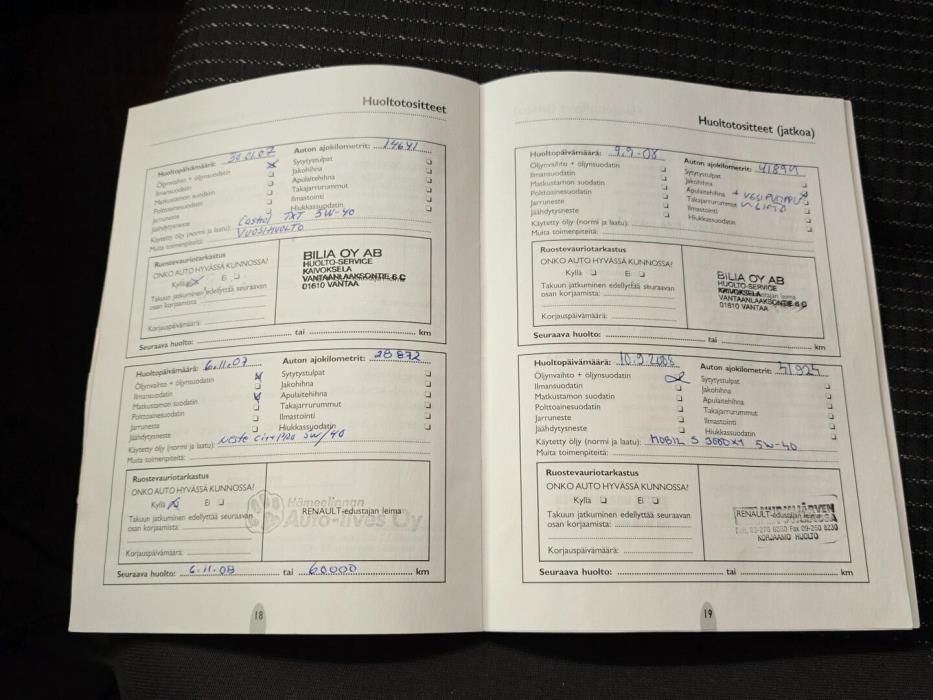 Huoltotositteet
Huoltopäivämäärä: 01.07 Auton ajokilometrit: 14641
Öljynvaihto + öljynsuodatin Sytytystulpat
Ilmansuodatin Jakohihna
Matkustamon suodatin Apulaitehihna
Polttoainesuodatin Takajarrurummut
Jarruneste Ilmastointi
Jäähdytysneste Hiukkassuodatin
Käytetty öljy (normi ja laatu): Castrol TXT 5W-40
Muita toimenpiteitä: VUOSIHUOLTO
Ruostevauriotarkastus
ONKO AUTO HYVÄSSÄ KUNNOSSA?
Kyllä Ei
Takuun jatkuminen edellyttää seuraavan
osan korjaamista:
Korjauspäivämäärä:
BILIA OY AB
HUOLTO-SERVICE
KAIVOKSELA
VANTAANLAAKSONTIE 6 C
01610 VANTAA
Seuraava huolto: tai km
Huoltopäivämäärä: 6.11.07 Auton ajokilometrit: 28872
Öljynvaihto + öljynsuodatin Sytytystulpat
Ilmansuodatin Jakohihna
Matkustamon suodatin Apulaitehihna
Polttoainesuodatin Takajarrurummut
Jarruneste Ilmastointi
Jäähdytysneste Hiukkassuodatin
Käytetty öljy (normi ja laatu): Neste 5W/40
Muita toimenpiteitä:
Ruostevauriotarkastus
ONKO AUTO HYVÄSSÄ KUNNOSSA?
Kyllä Ei
Takuun jatkuminen edellyttää seuraavan
osan korjaamista:
Korjauspäivämäärä:
Hämeenlinnan
RENAULT-edustajan leima
Auto-Ilves Oy
Seuraava huolto: 6.11.08 tai 60000 km
18
Huoltotositteet (jatkoa)
Huoltopäivämäärä: 9.9-08 Auton ajokilometrit: 41894
Öljynvaihto + öljynsuodatin Sytytystulpat
Ilmansuodatin Jakohihna
Matkustamon suodatin Apulaitehihna + VESIPUMPPU
Polttoainesuodatin Takajarrurummut
Jarruneste Ilmastointi
Jäähdytysneste Hiukkassuodatin
Käytetty öljy (normi ja laatu):
Muita toimenpiteitä:
Ruostevauriotarkastus
ONKO AUTO HYVÄSSÄ KUNNOSSA?
Kyllä Ei
Takuun jatkuminen edellyttää seuraavan
osan korjaamista:
Korjauspäivämäärä:
BILIA OY AB
HUOLTO-SERVICE
KAIVOKSELA
VANTAANLAAKSONTIE 6 C
01610 VANTAA
Seuraava huolto: tai km
Huoltopäivämäärä: 10.9.2008 Auton ajokilometrit: 41924
Öljynvaihto + öljynsuodatin Sytytystulpat
Ilmansuodatin Jakohihna
Matkustamon suodatin Apulaitehihna
Polttoainesuodatin Takajarrurummut
Jarruneste Ilmastointi
Jäähdytysneste Hiukkassuodatin
Käytetty öljy (normi ja laatu): MOBIL S 3000X1 5W-40
Muita toimenpiteitä:
Ruostevauriotarkastus
ONKO AUTO HYVÄSSÄ KUNNOSSA?
Kyllä Ei
Takuun jatkuminen edellyttää seuraavan
osan korjaamista:
Korjauspäivämäärä:
RENAULT-edustajan leima
Fax 09-250 8230
KORJAAMO HUOLTO
Seuraava huolto: tai km
19